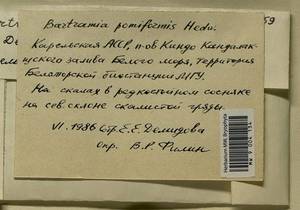 Bartramia pomiformis Hedw.
Карельская АССР, п-ов Киндо Кандалак-
шского залива Белого моря, территория
Беломорской биостанции МГУ.
На скалах в редкостойном сосняке
на сев. склоне скалистой гряды.
VI. 1986 Сбр. Е.Е. Демидова
Опр. В.Р. Филин
59